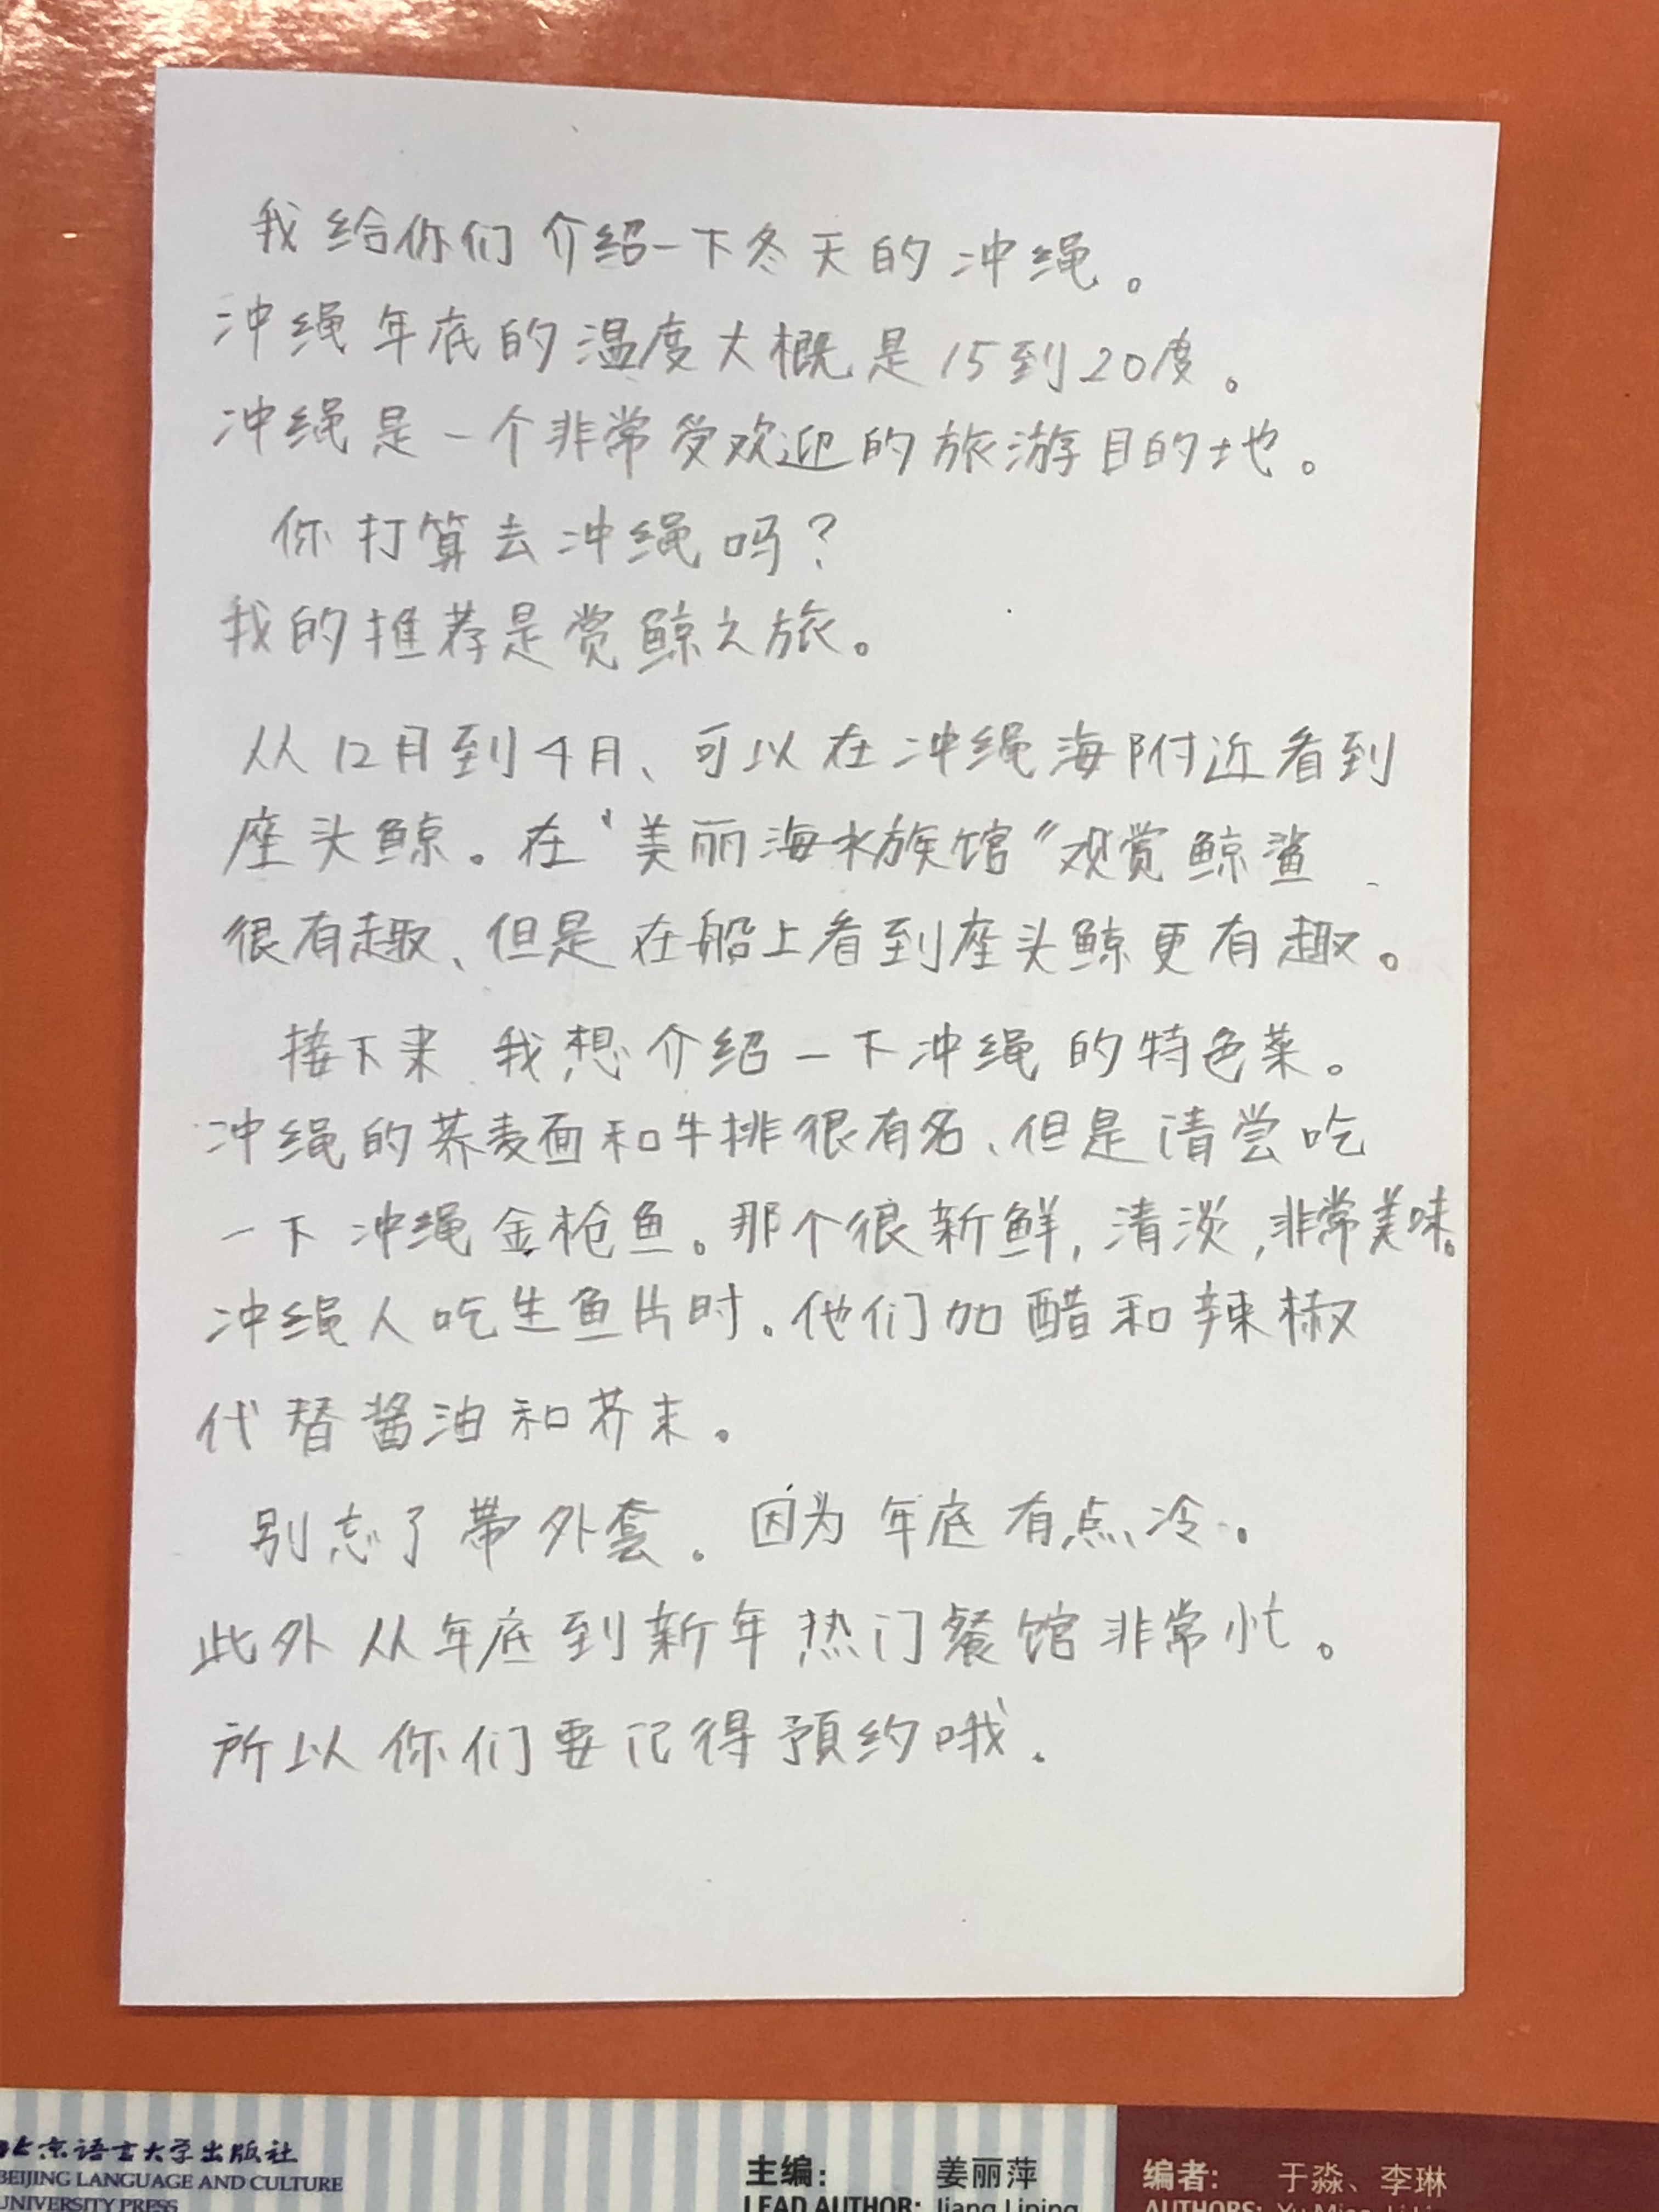 我给你们介绍一下冬天的冲绳。
冲绳年底的温度大概是15到20度。
冲绳是一个非常受欢迎的旅游目的地。
你打算去冲绳吗？
我的推荐是赏鲸之旅。
从12月到4月、可以在冲绳海附近看到
座头鲸。在“美丽海水族馆”观赏鲸鲨
很有趣、但是在船上看到座头鲸更有趣。
接下来 我想介绍一下冲绳的特色菜。
冲绳的荞麦面和牛排很有名、但是请尝吃
一下冲绳金枪鱼。那个很新鲜，清淡，非常美味。
冲绳人吃生鱼片时。他们加醋和辣椒
代替酱油和芥末。
别忘了带外套。因为年底有点冷。
此外从年底到新年热门餐馆非常忙。
所以你们要记得預约哦。
北京语言大学出版社
BEIJING LANGUAGE AND CULTURE
UNIVERSITY PRESS
主编： 姜丽萍
LEAD AUTHOR: Jiang Liping
编者： 于淼、李琳
AUTHORS: